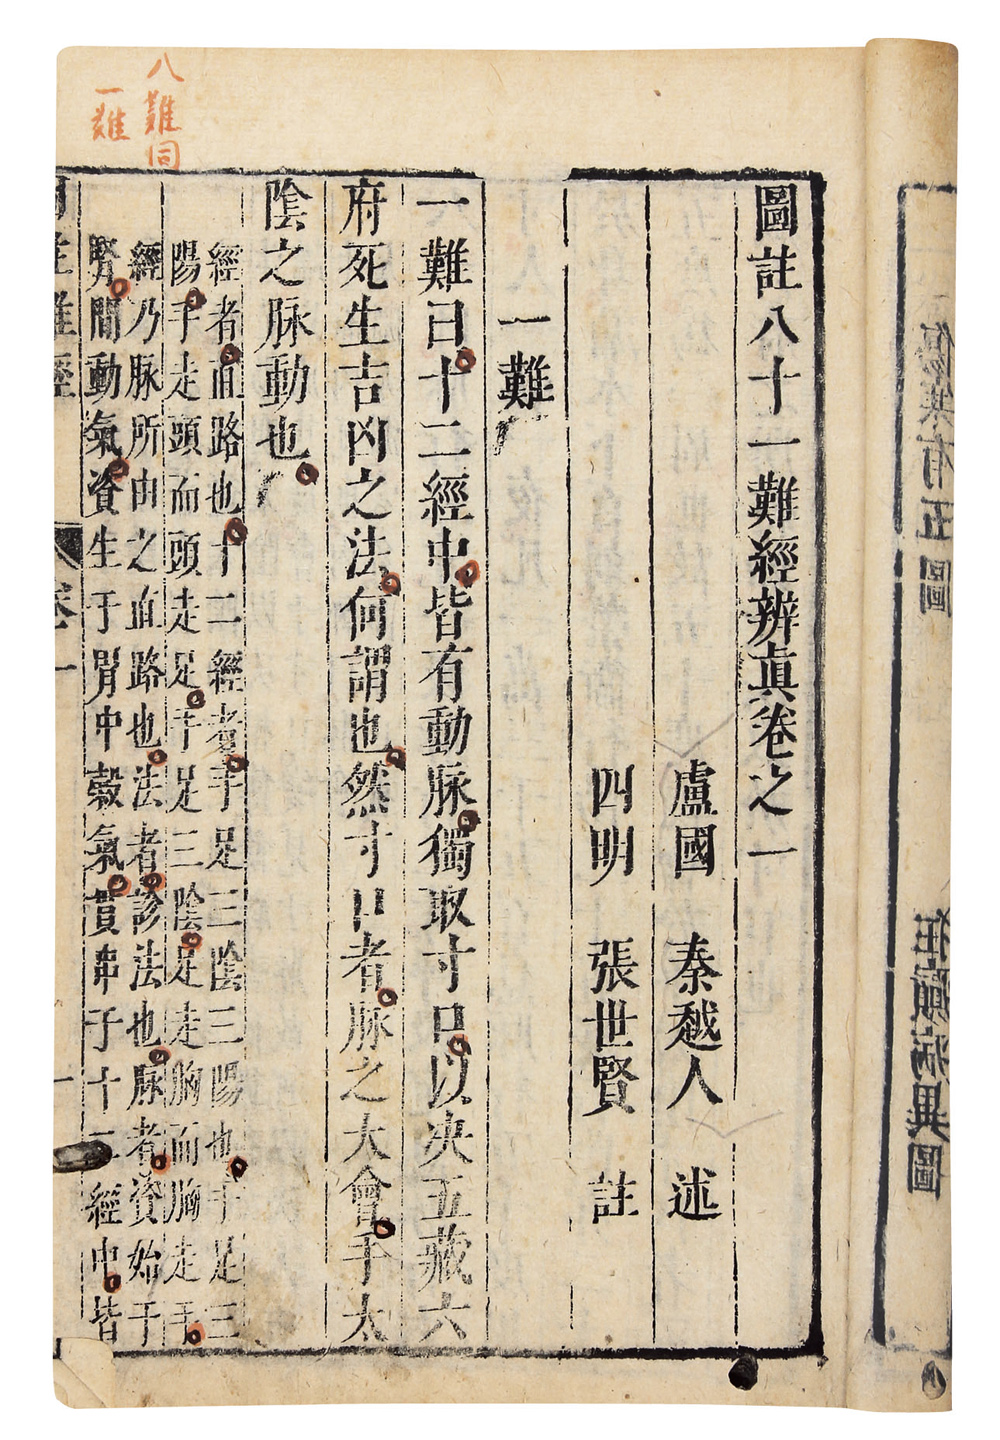 圖註八十一難經辨眞卷之一
盧國 秦越人 述
四明 張世賢 註
一難
一難曰十二經中皆有動脉獨取寸口以决五藏六
府死生吉凶之法何謂也然寸口者脉之大會手太
陰之脉動也
經者直路也十二經者手足三陰三陽也手足三
陽手走頭而頭走足手足三陰足走胸而胸走手
經乃脉所由之直路也法者診法也脉者資始于
腎間動氣資生于胃中穀氣貫串于十二經中皆
圖註難經
卷一
一
八難同
一難
傷寒有五圖
狂癲病異圖